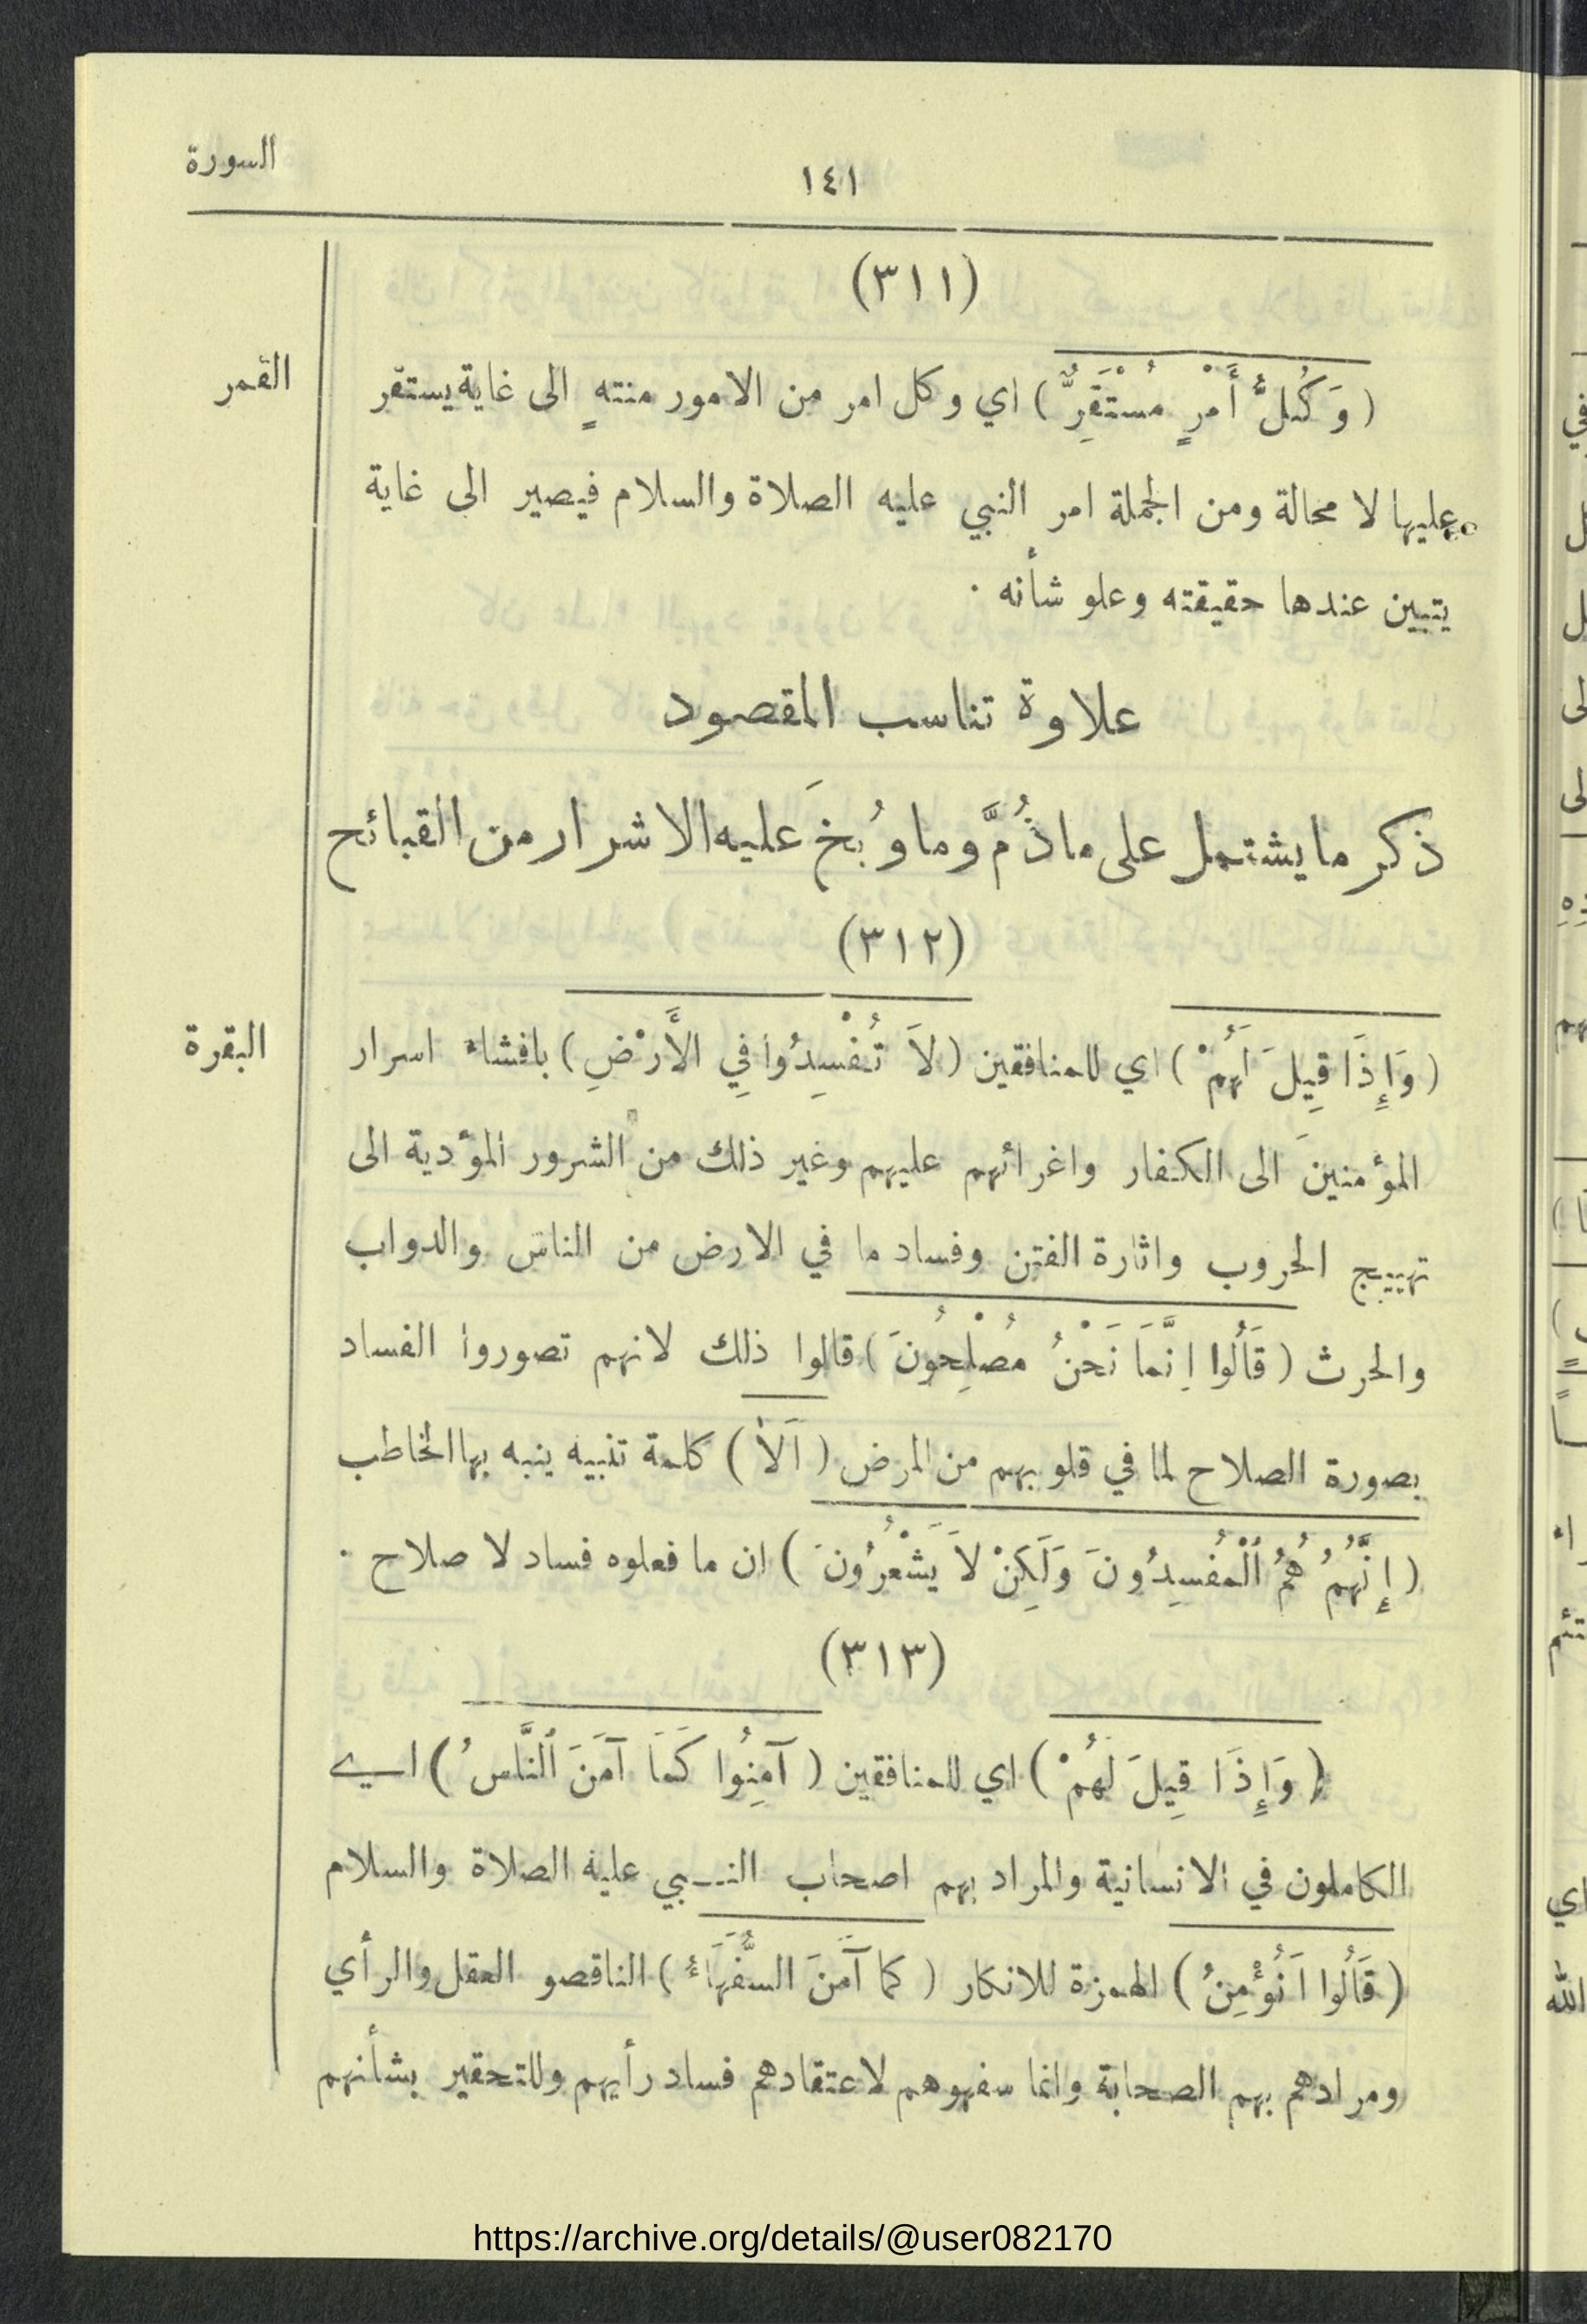 السورة
١٤١
(٣١١)
القمر
(وَكُلُّ أَمْرٍ مُسْتَقِرٌّ) اي وكل امر من الامور منتهٍ الى غاية يستقر
عليها لا محالة ومن الجملة امر النبي عليه الصلاة والسلام فيصير الى غاية
يتبين عندها حقيقته وعلو شأنه ٠
علاوة تناسب المقصود
ذكر ما يشتمل على ما ذُمَّ وما وُبخَ عليه الاشرار من القبائح
(٣١٢)
البقرة
(وَإِذَا قِيلَ لَهُمْ) اي للمنافقين (لاَ تُفْسِدُوا فِي الأَرْضِ) بافشاء اسرار
المؤمنينَ الى الكفار واغرائهم عليهم وغير ذلك من الشرور المؤدية الى
تهييج الحروب واثارة الفتن وفساد ما في الارض من الناس والدواب
والحرث (قَالُوا اِنَّمَا نَحْنُ مُصْلِحُونَ) قالوا ذلك لانهم تصوروا الفساد
بصورة الصلاح لما في قلوبهم من المرض (اَلاَ) كلمة تنبيه ينبه بها المخاطب
(إِنَّهُمْ هُمُ ٱلْمُفْسِدُونَ وَلَكِنْ لاَ يَشْعُرُونَ) ان ما فعلوه فساد لا صلاح ٠
(٣١٣)
(وَإِذَا قِيلَ لَهُمْ) اي للمنافقين (آمِنُوا كَمَا آمَنَ ٱلنَّاسُ) اي
الكاملون في الانسانية والمراد بهم اصحاب النبي عليه الصلاة والسلام
(قَالُوا اَنُؤْمِنُ) الهمزة للانكار (كما آمَنَ السُّفَهَاءُ) الناقصو العقل والرأي
ومرادهم بهم الصحابة وانما سفهوهم لاعتقادهم فساد رأيهم وللتحقير بشأنهم
https://archive.org/details/@user082170